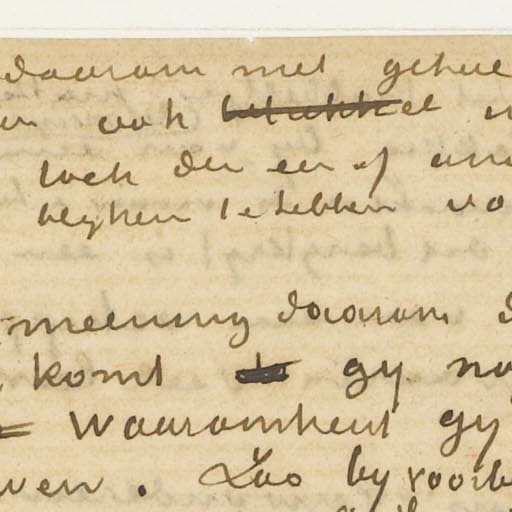 daarom met gehee
en ook
toch den een of an
blyken te hebben vo
meening daarom d
komt gy no
Waaromheut gy
ven. Zoo by voorb